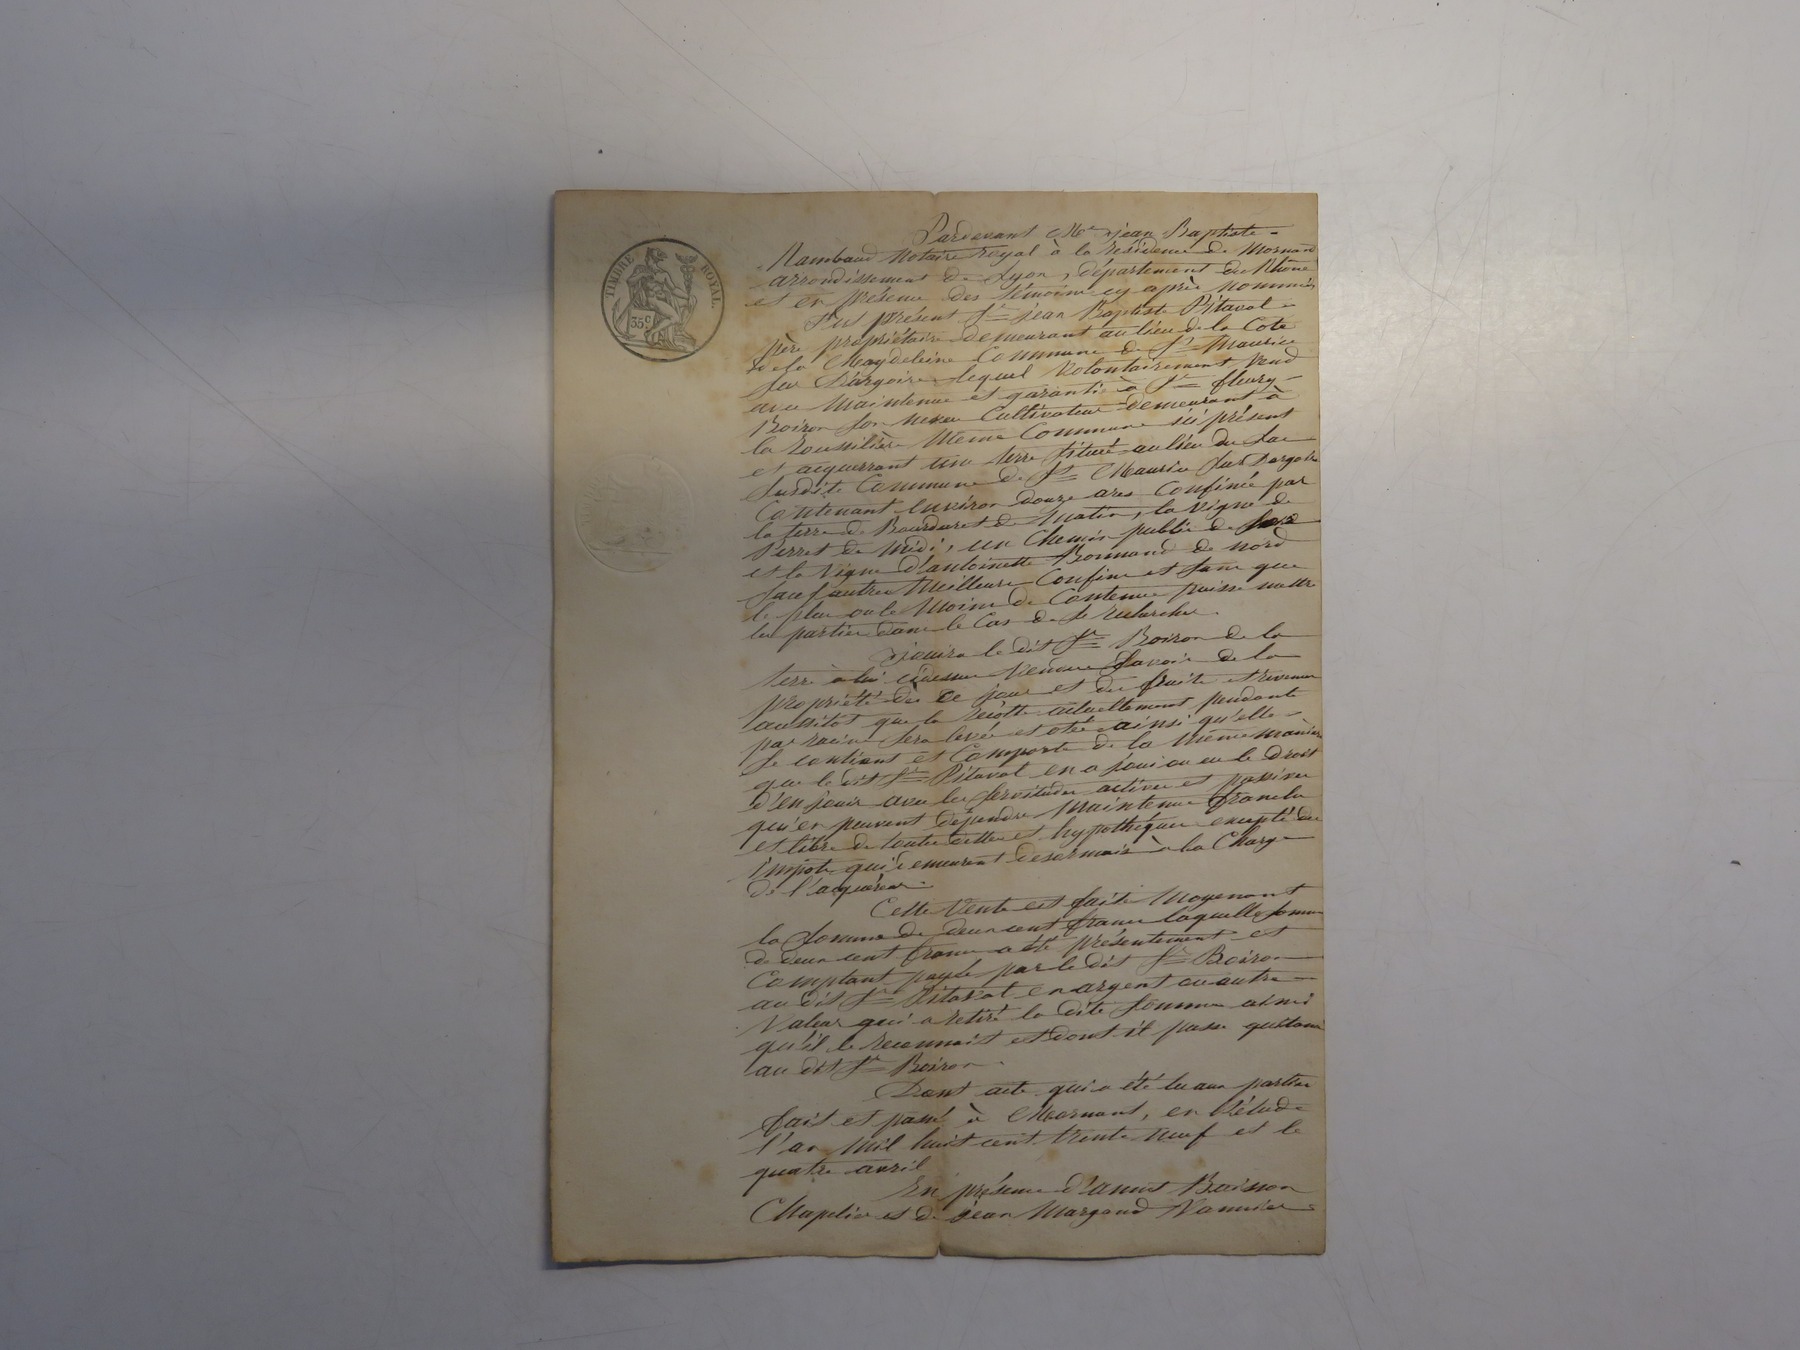 TIMBRE ROYAL
35 c.
Pardevant Me jean Baptiste
Rambaud Notaire royal à la résidence de Mornand
arrondissement de Lyon, département du Rhône
et en présence des témoins cy après nommés
Fut présent Sr jean Baptiste Pitaval
père propriétaire demeurant au lieu de la Cote
de la Magdeleine Commune de St Maurice
sur Dargoire lequel volontairement vend
avec maintenue et garantie à Sr fleury
Boiron son neveu Cultivateur demeurant à
la Roussilière même Commune ici présent
et acquerrant une terre située au lieu du
susdite Commune de St Maurice sur Dargoire
Contenant environ douze ares Confinée par
la terre de de matin, la vigne de
Perret de midi, un Chemin public de soir
et la vigne d'antoinette Bonnand de nord
sauf autres meilleurs Confins et sans que
le plus ou le moins de Contenue puisse mettre
les parties dans le Cas de se rechercher.
jouira le dit Sr Boiron de la
terre à lui cidessus vendue Savoir de la
propriété dès ce jour et des fruits et revenus
aussitôt que la récolte actuellement pendante
par racine sera levée et otée ainsi qu'elle
se contient et Comporte de la même manière
que le dit Sr Pitaval en a joui ou eu le droit
d'en jouir avec les servitudes actives et passives
qu'en peuvent dépendre maintenue franche
et libre de toutes dettes et hypothèques excepté des
impots qui demeurent desormais à la Charge
de l'acquéreur.
Cette vente est faite moyenant
la somme de deux cent francs laquelle somme
de deux cent francs a été présentement et
Comptant payée par le dit Sr Boiron
au dit Sr Pitaval en argent ou autre
valeur qui a retiré la dite somme ainsi
qu'il le reconnait et dont il passe quittance
au dit Sr Boiron.
Dont acte qui a été lu aux parties
fait et passé à Mornant, en l'étude
l'an mil huit cent trente neuf et le
quatre avril
En présence d'annet Buisson
Chapelier et de jean Margand Vannier